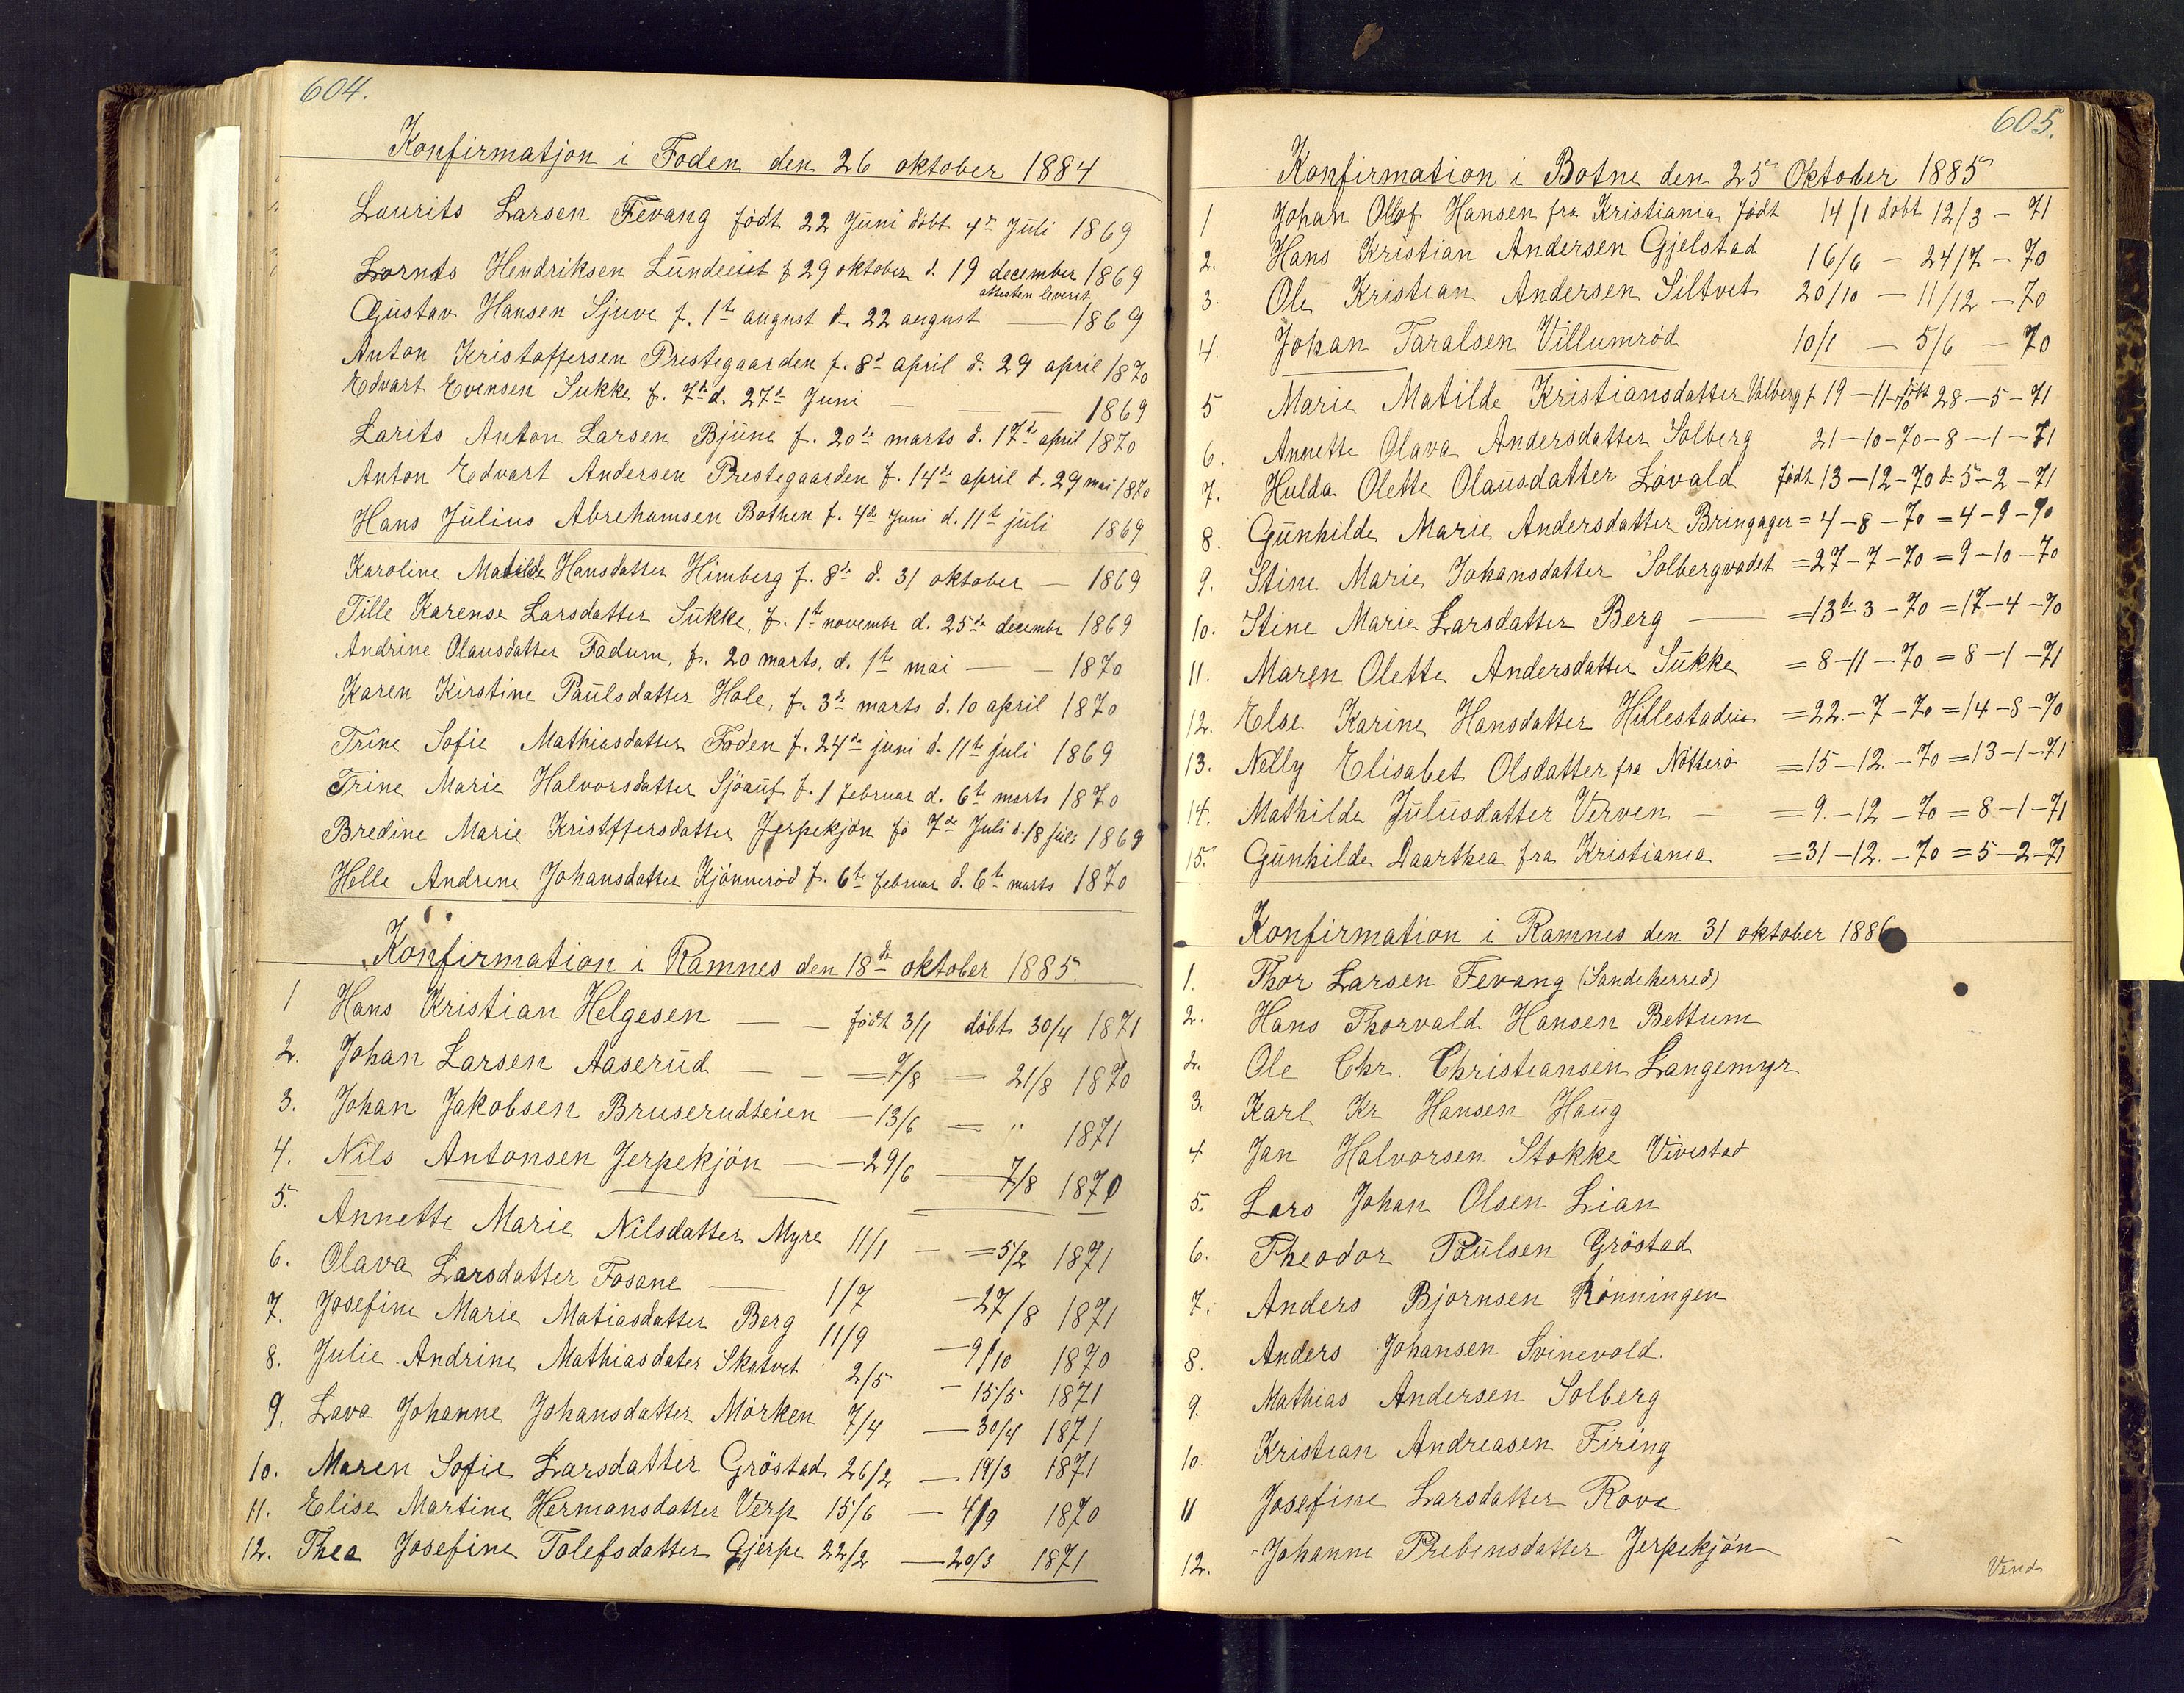 604.
Konfirmatjon i Foden den 26 oktober 1884
Laurits Larsen Fevang født 22 Juni döbt 4de Juli 1869
Lornts Hendriksen Lundeeiet f 29 oktober d. 19 december 1869
attesten leveret
Gustav Hansen Sjuve f. 1te august d. 22 august — 1869
Anton Kristoffersen Prestegaarden f. 8de april d. 29 april 1870
Edvart Evensen Sukke f. 7de d. 27de Juni — — 1869
Larits Anton Larsen Bjune f. 20de marts d. 17de april 1870
Anton Edvart Andersen Prestegaarden f. 14de april d. 29 mai 1870
Hans Julius Abrehamsen Bothen f. 4de Juni d. 11te juli 1869
Karoline Matilde Hansdatter Himberg f. 8de d. 31 oktober — 1869
Tille Karense Larsdatter Sukke, f. 1te novembr d. 25de decembr 1869
Andrine Olausdatter Fadum, f. 20 marts, d. 1te mai — — 1870
Karen Kirstine Paulsdatter Hole, f. 3de marts d. 10 april 1870
Trine Sofie Mathiasdatter Foden f. 24de juni d. 11te juli 1869
Trine Marie Halvorsdatter Sjöauf f. 1 februar d. 6te marts 1870
Bredine Marie Kristffersdatter Jerpekjön fö 7de Juli d. 18 juli 1869
Helle Andrine Johansdatter Kjönneröd f. 6te februar d. 6te marts 1870
Konfirmation i Ramnes den 18de oktober 1885.
1 Hans Kristian Helgesen — — födt 3/1 döbt 30/4 1871
2. Johan Larsen Aaserud — — = 7/8 — 21/8 1870
3. Johan Jakobsen Bruserudteien — 13/6 = " 1871
4. Nils Antonsen Jerpekjön — — 29/6 — 7/8 1870
5. Annette Marie Nilsdatter Myre 11/1 — = 5/2 1871
6. Olava Larsdatter Fosane — 1/7 — 27/8 1871
7. Josefine Marie Matiasdatter Berg 11/9 — 9/10 1870
8. Julie Andrine Mathiasdater Skatvet 2/5 — 15/5 1871
9. Lava Johanne Johansdatter Mörken 7/4 — 30/4 1871
10. Maren Sofie Larsdatter Gröstad 26/2 — 19/3 1871
11. Elise Martine Hermansdatter Verp 15/6 — 4/9 1870
12. Thea Josefine Tolefsdatter Gjerpe 22/2 — 20/3 1871
605.
Konfirmation i Botne den 25 Oktober 1885
1 Johan Olof Hansen fra Kristiania födt 14/1 döbt 12/3 — 71
2. Hans Kristian Andersen Gjelstad 16/6 — 24/7 — 70
3. Ole Kristian Andersen Siltvet 20/10 — 11/12 — 70
4. Johan Taralsen Villumröd 10/1 — 5/6 — 70
5 Marie Matilde Kristiansdatter Valberg f 19 — 11 — 70 döbt 28 — 5 — 71
6. Annette Olava Andersdatter Solberg 21 — 10 — 70 — 8 — 1 — 71
7. Hulda Olette Olausdatter Lövald födt 13 — 12 — 70 d. 5 — 2 — 71
8. Gunhilde Marie Andersdatter Bringager = 4 — 8 — 70 = 4 — 9 — 70
9. Stine Marie Johansdatter Solbergvadet = 27 — 7 — 70 = 9 — 10 — 70
10. Stine Marie Larsdatter Berg — = 13de 3 — 70 = 17 — 4 — 70
11. Maren Olette Andersdatter Sukke = 8 — 11 — 70 = 8 — 1 — 71
12. Else Karine Hansdatter Hillestadeie = 22. — 7 — 70 = 14 — 8 — 70
13. Nelly Elisabet Olsdatter fra Nötterö = 15 — 12. — 70 = 13 — 1 — 71
14. Mathilde Juliusdatter Verven — = 9. — 12 — 70 = 8 — 1 — 71
15. Gunhilde Daarthea fra Kristiania = 31 — 12. — 70 = 5 — 2 — 71
Konfirmation i Ramnes den 31 oktober 1886
1. Thor Larsen Fevang (Sandeherred)
2. Hans Thorvald Hansen Bettum
2. Ole Chr. Christiansen Langemyr
3. Karl Kr Hansen Haug
4 Jan Halvorsen Stokke Vivestad
5. Lars Johan Olsen Lian
6. Theodor Paulsen Gröstad
7. Anders Bjornsen Rönningen
8. Anders Johansen Svinevold.
9. Mathias Andersen Solberg
10 Kristian Andreasen Firing
11 Josefine Larsdatter Rove
12. Johanne Prebensdatter Jerpekjön
Vend